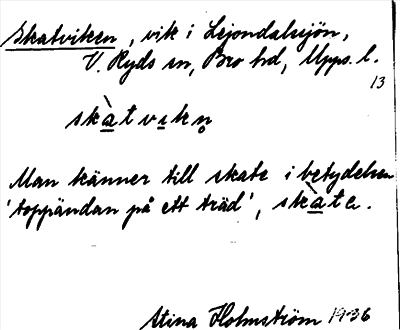 Skatviken, vik i Lejondalssjön,
V. Ryds sn, Bro hd, Upps. l.
13
skàtvıkn̥
Man känner till skate i betydelsen
'toppändan på ett träd', skàta.
Stina Holmström 1936